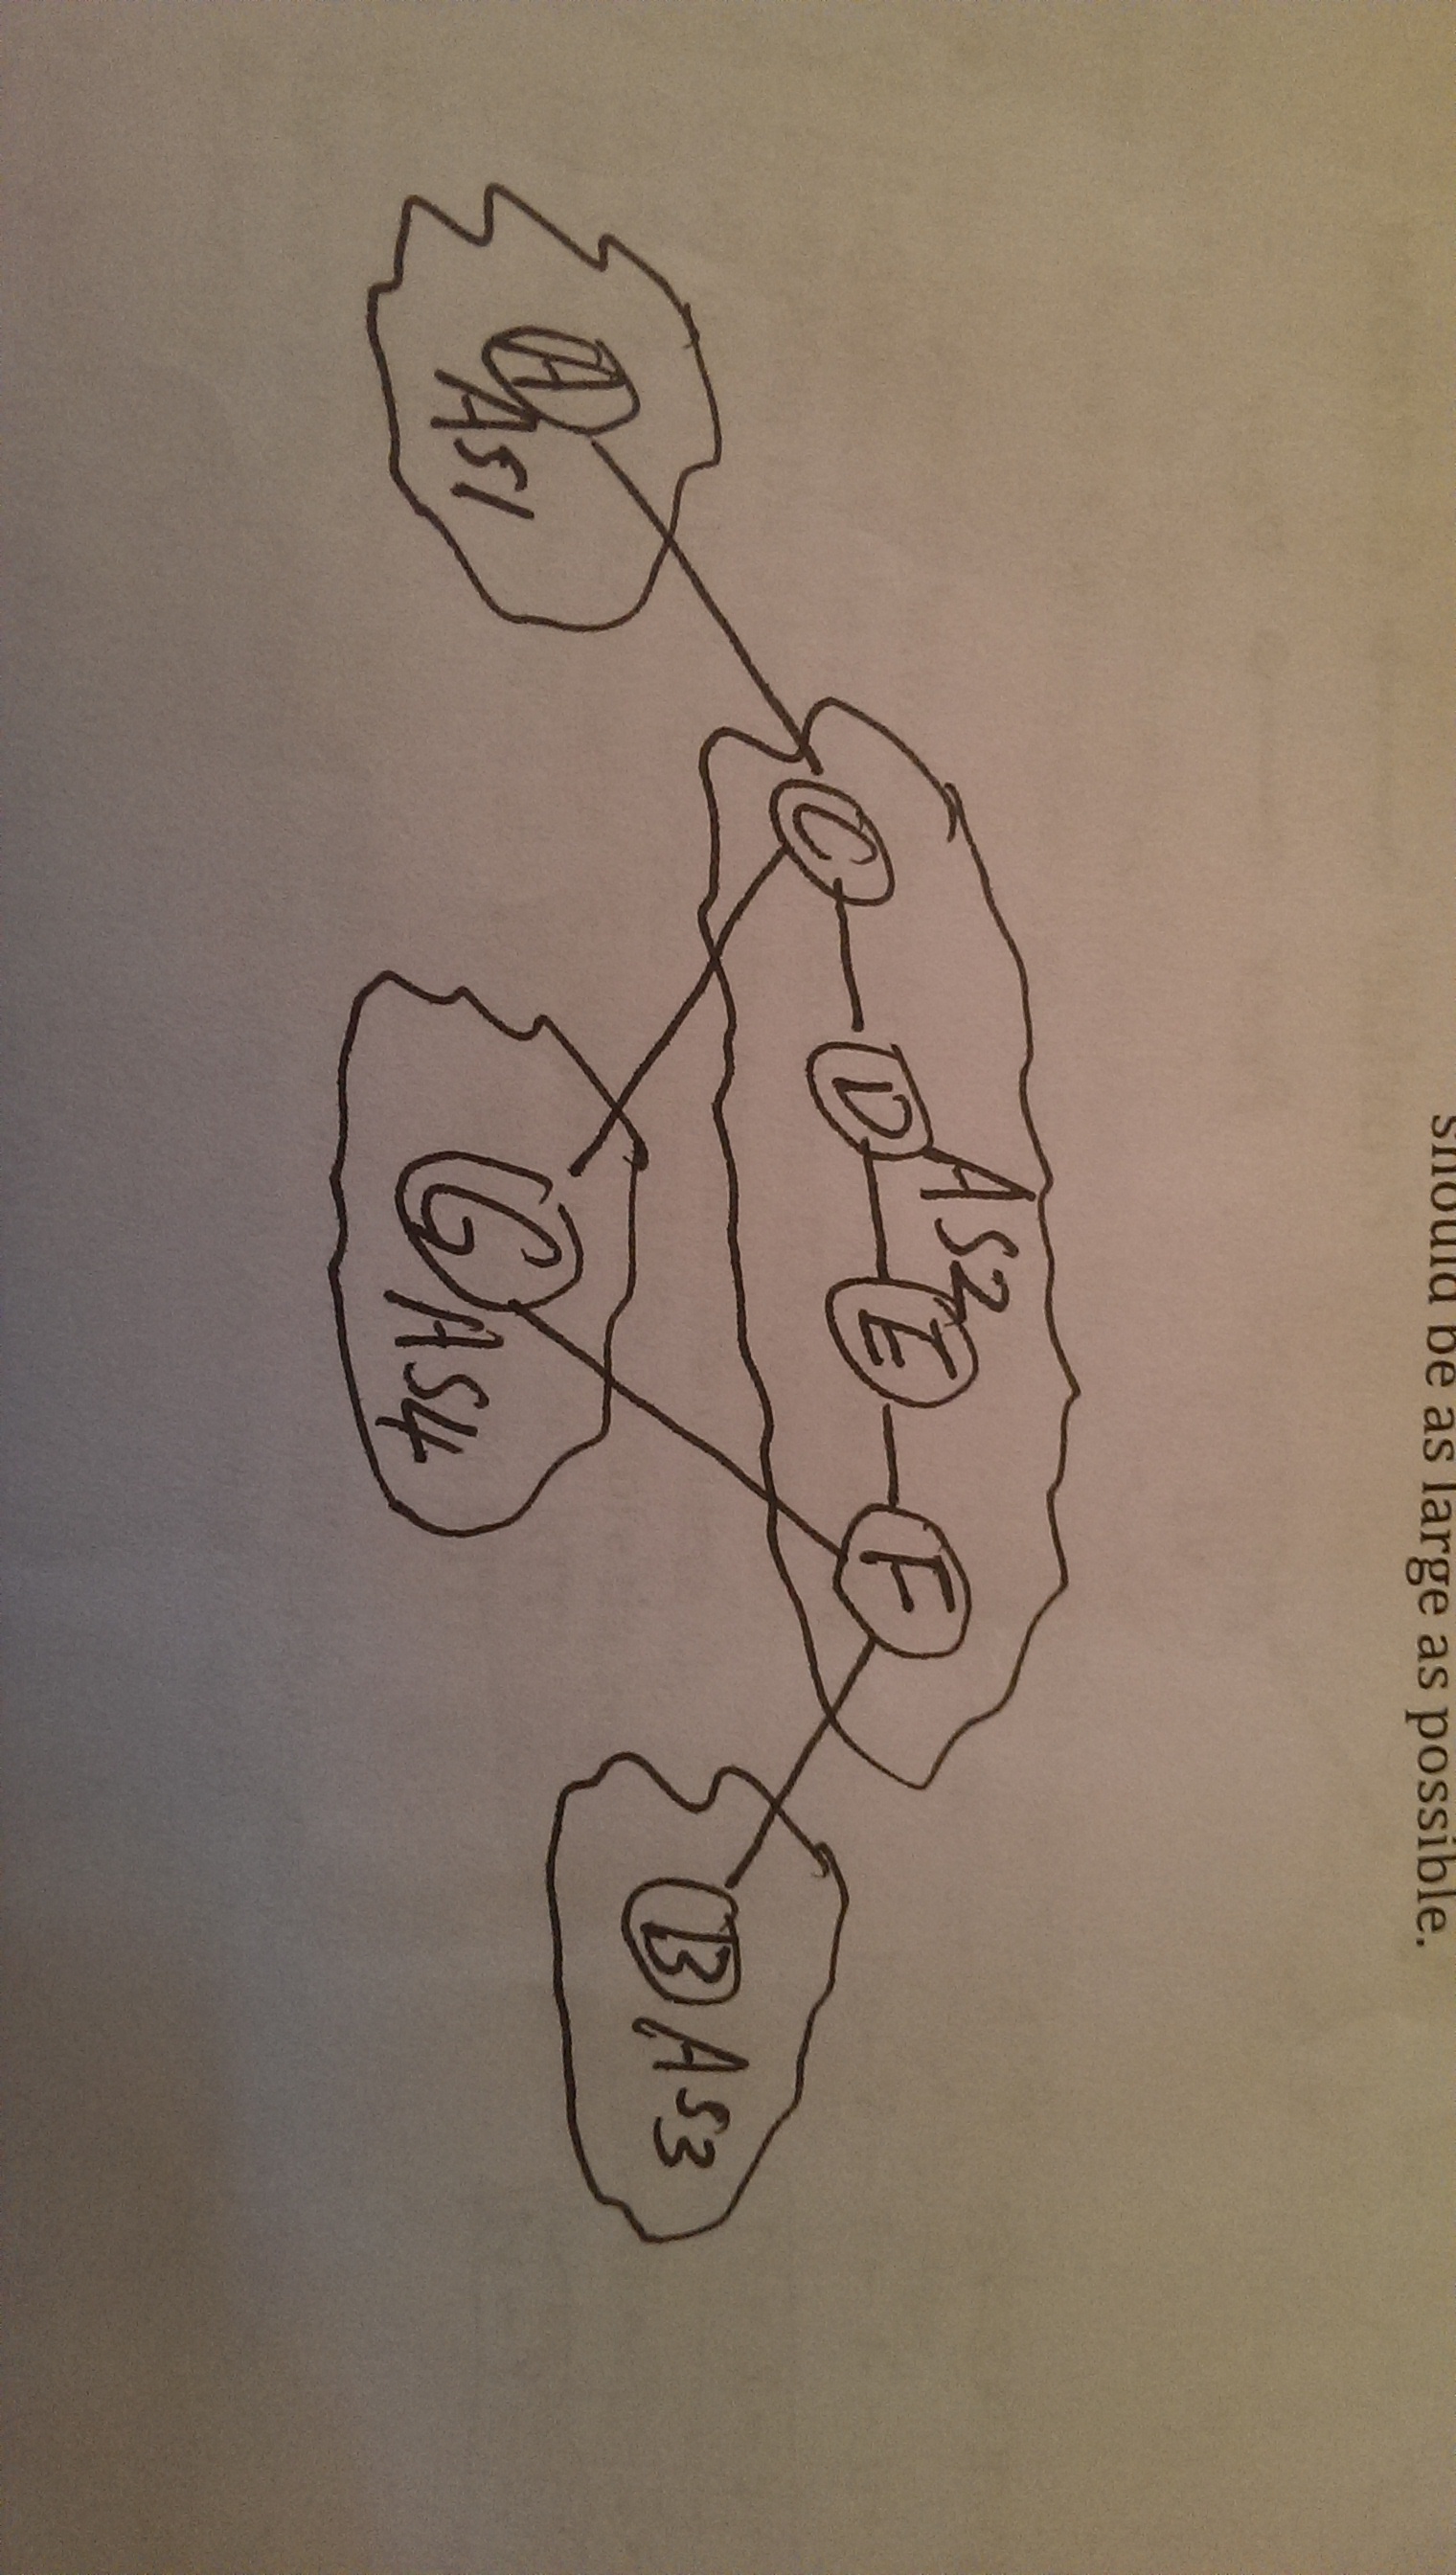 should be as large as possible.
AS2
C D E F
A
AS1
G
AS4
B
AS3